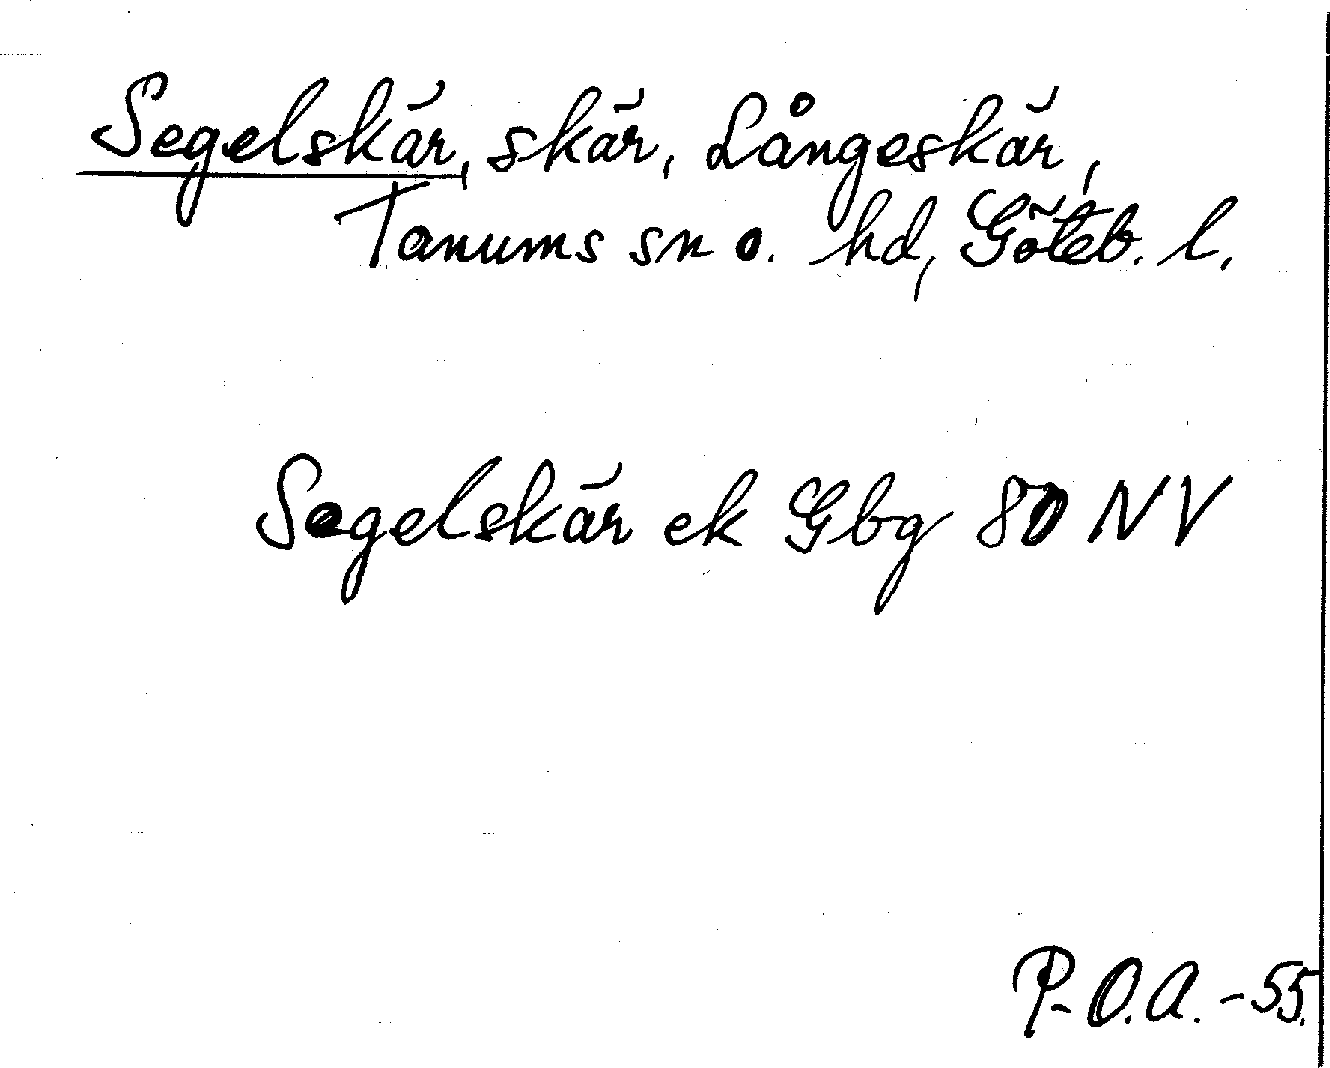 Segelskär, skär, Långeskär,
Tanums sn o. hd, Göteb. l.
Segelskär ek Gbg 80 NV
P-O.A. -55.